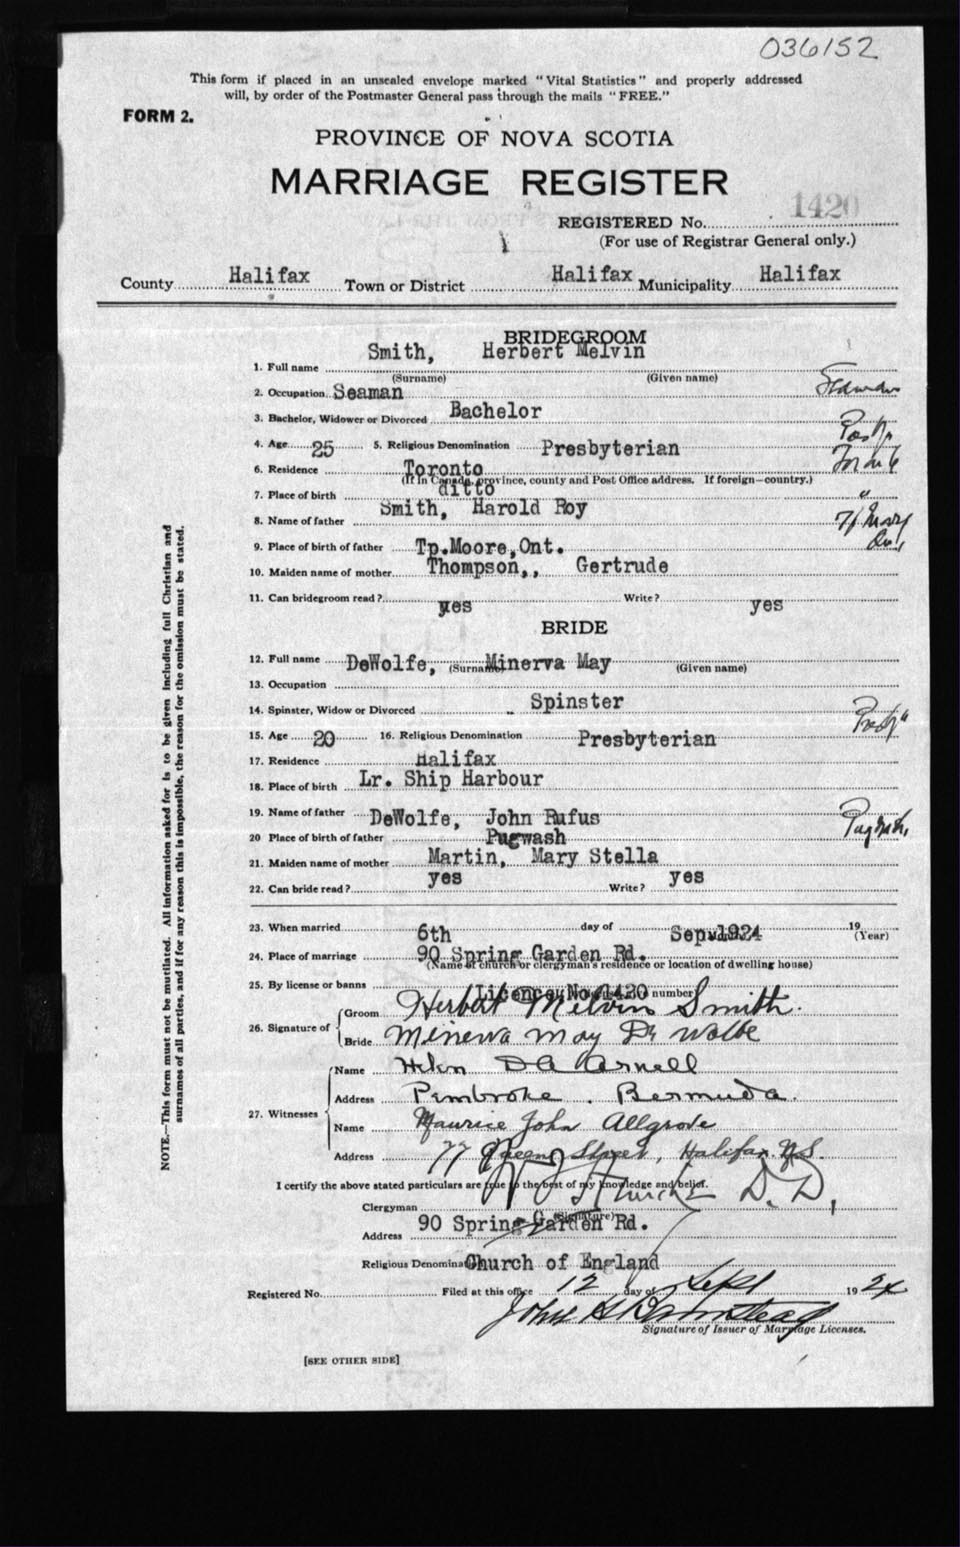 036152
This form if placed in an unsealed envelope marked "Vital Statistics" and properly addressed
will, by order of the Postmaster General pass through the mails "FREE."
FORM 2.
PROVINCE OF NOVA SCOTIA
MARRIAGE REGISTER
REGISTERED No. 1420
(For use of Registrar General only.)
County Halifax Town or District Halifax Municipality Halifax
BRIDEGROOM
1. Full name Smith, Herbert Melvin
(Surname) (Given name)
2. Occupation Seaman Seaman
3. Bachelor, Widower or Divorced Bachelor
4. Age 25 5. Religious Denomination Presbyterian
6. Residence Toronto
(If in Canada, province, county and Post Office address. If foreign—country.)
7. Place of birth ditto "
8. Name of father Smith, Harold Roy
9. Place of birth of father Tp.Moore,Ont.
10. Maiden name of mother Thompson,, Gertrude
11. Can bridegroom read? yes Write? yes
BRIDE
12. Full name DeWolfe, (Surname) Minerva May (Given name)
13. Occupation
14. Spinster, Widow or Divorced Spinster
15. Age 20 16. Religious Denomination Presbyterian
17. Residence Halifax
18. Place of birth Lr. Ship Harbour
19. Name of father DeWolfe, John Rufus
20 Place of birth of father Pugwash
21. Maiden name of mother Martin, Mary Stella
22. Can bride read? yes Write? yes
23. When married 6th day of Sep. 1924 19 (Year)
24. Place of marriage 90 Spring Garden Rd.
(Name of church or clergyman's residence or location of dwelling house)
25. By license or banns Licence No. 1420 number
26. Signature of Groom Herbert Melvin Smith.
Bride Minerva May De Wolfe
27. Witnesses Name Helen Arnell
Address Pembroke. Bermuda.
Name Maurice John Allgrove
Address 77 Queen Street, Halifax. N.S.
I certify the above stated particulars are true to the best of my knowledge and belief.
Clergyman D.D.
(Signature)
Address 90 Spring Garden Rd.
Religious Denomination Church of England
Registered No. Filed at this office 12 day of Sept 1924
John
Signature of Issuer of Marriage Licenses.
[SEE OTHER SIDE]
NOTE.—This form must not be mutilated. All information asked for is to be given including full Christian and
surnames of all parties, and if for any reason this is impossible, the reason for the omission must be stated.